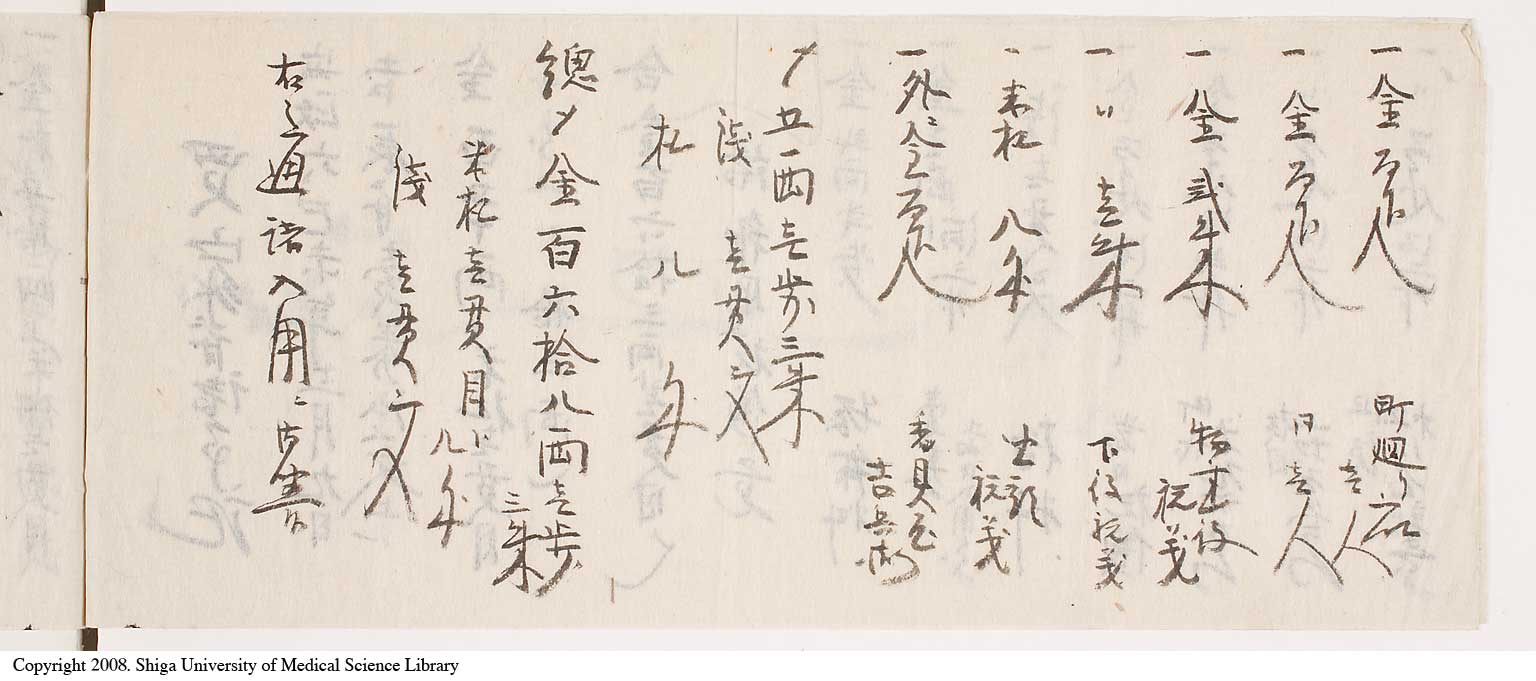 一 金百疋 町廻り 壱人
一 金百疋 同 壱人
一 金弐朱 物書役 祝義
一 〃 壱朱 下役祝義
一 米札 八分 祝義
一 外ニ金百疋 吉兵衛
〆 五両壱歩三朱
銭 壱貫文
札 八分
總〆金百六拾八両壱歩三朱
米札壱貫目 八分
銭 壱貫文
右之通諸入用ニ
Copyright 2008. Shiga University of Medical Science Library